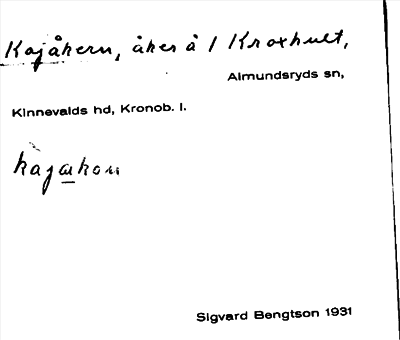 Kajåkern, åker å 1 Kroxhult,
Almundsryds sn,
Kinnevalds hd, Kronob. l.
kàjakon
Sigvard Bengtson 1931